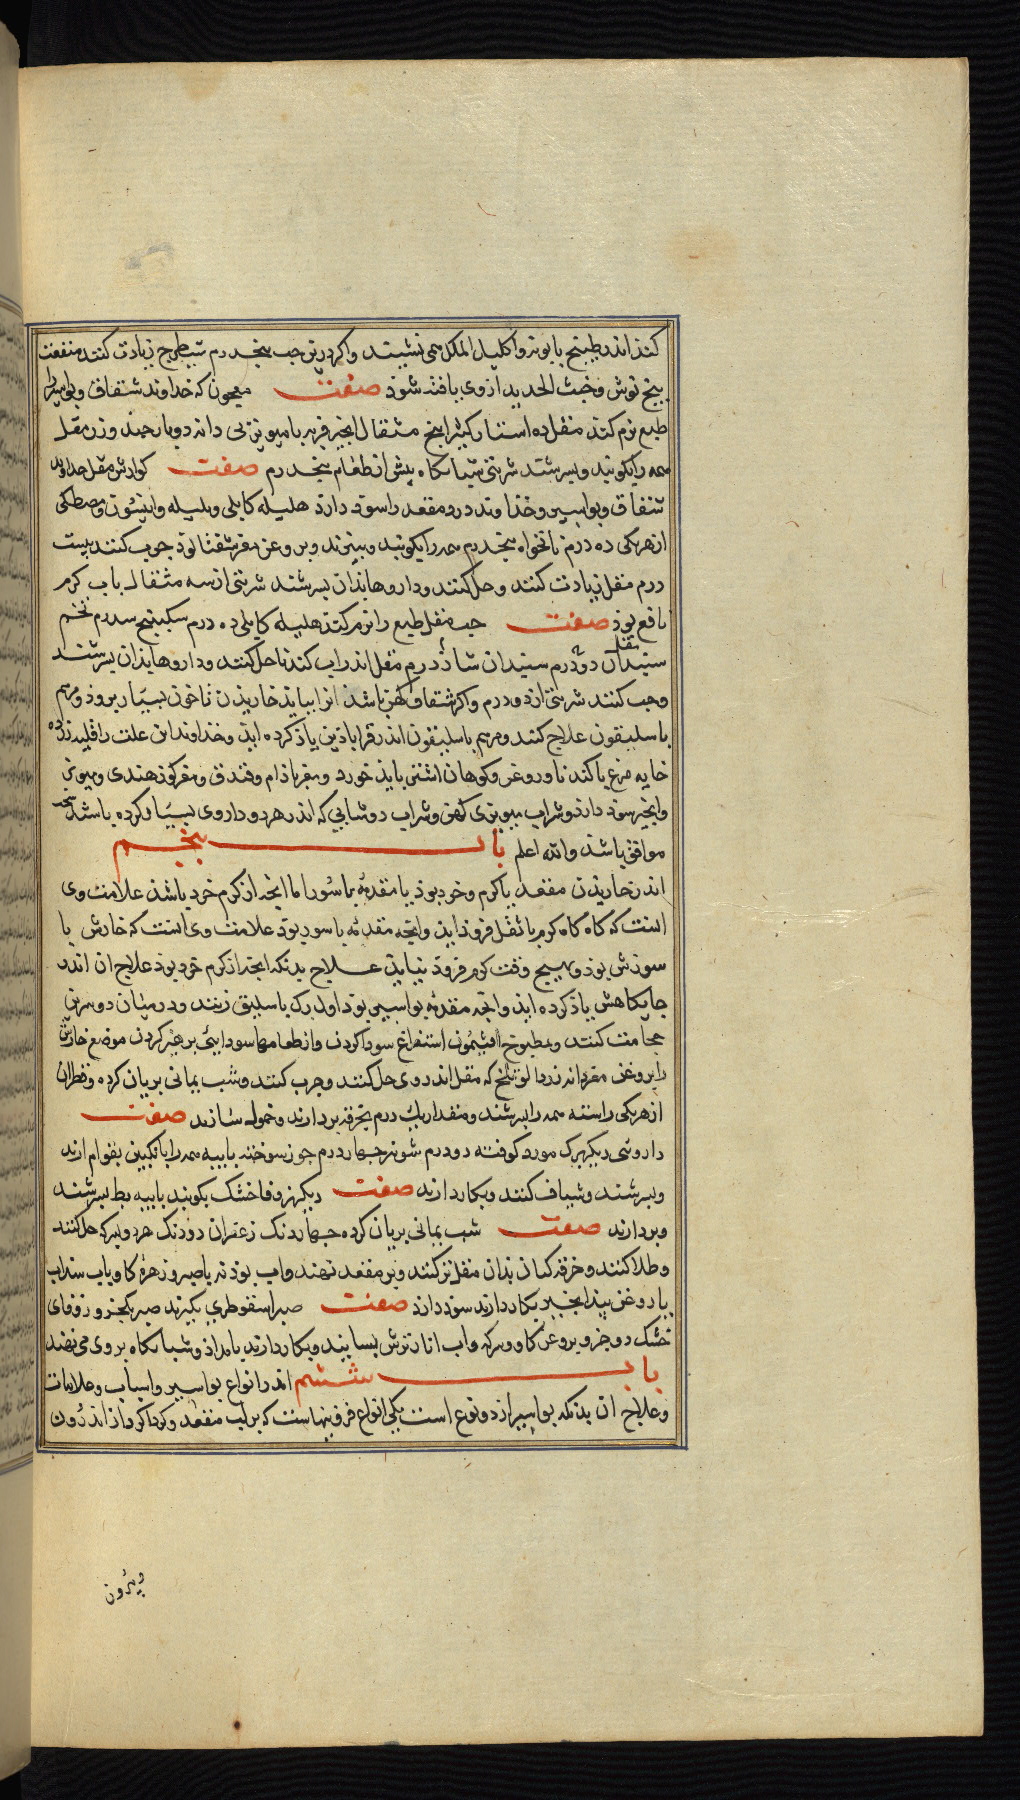 کند اندر طبیخ بابونه و اکلیل الملک می نشیند و اکر درین حب پنجدرم شیطرج زیادت کنند منفعت
بیخ توش و خبث الحدید ازوی یافته شوذ صفت معجون که خداوند شقاق و بواسیر را
طبع نرم کند مقل ده استار کثیرا پنج مثقال انجیر فربه با میویز بی دانه دوبار چند وزن مقل
همه را بکوبند و بسرشند شربتی شبانکاه پیش از طعام پنجدرم صفت کوارش مقل خداوند
شقاق و بواسیر و خذاوند درد مقعد را سوذ دارد هلیله کابلی و بلیله و انیسون و مصطکی
از هریکی ده درم نانخواه پنجدرم همه را بکوبند و ببیزند و بروغن مغز شفتالوذ چرب کنند بیست
درم مقل زیادت کنند و حل کنند و داروها بذان بسرشند شربتی از سه مثقال باب کرم
نافع بوذ صفت حب مقل طبع را نرم کند هلیله کابلی ده درم سکبینج سه درم تخم
سپندان دودرم سپندان شاذ درم مقل اندر اب کندنا حل کنند و داروها بذان بسرشند
و حب کنند شربتی از دو درم و اکر شقاق کهن باشد انرا بباید خاریذن تا خون بسیار بروذ و مرهم
باسلیقون علاج کنند و مرهم باسلیقون اندر قراباذین یاذ کرده ایذ و خذاوند این علت را قلیه زرده
خایه مرغ با کندنا و روغن کوهان اشتر بایذ خورد و مغز باذام و فندق و مغز کوز هندی و میویز
و انجیر سوذ دارذ و شراب میویزی کهن و شراب دوشابی که اندر هردو داروی بسیار کرده باشند سخت
موافق باشذ والله اعلم باب پنجم
اندر خاریذن مقعد با کرم خرد بوذ یا مقدمه باسور اما انچه از کرم خرد باشذ علامت وی
انست که کاه کاه کرم با ثفل فروذ ایذ و انچه مقدمه باسور بوذ علامت وی انست که خارش با
سوزش بوذ و هیچ وقت کرم فروذ نیایذ علاج بدنکه انچه از کرم خرد بوذ علاج ان اندر
جایکاهش یاذ کرده ایذ و انچه مقدمه بواسیر بوذ اول رک باسلیق زنند و در میان دو سرین
حجامت کنند و بمطبوخ افتیمون استفراغ سودا کردن و از طعامها سودایی پرهیز کردن موضع خارش
را بروغن مغز دانه زردالو تلخ که مقل اندر وی حل کنند و چرب کنند و شب یمانی بریان کرده و قطران
از هریکی راسته همه را بسرشند و مقدار یک درم بخرقه بردارند و حمول سازند صفت
داروی دیکر برک مورد کوفته دو درم شونیز چهار درم جوز سوخته با پیه همه را بانکبین بقوام ارند
و بسرشند و شیاف کنند و بکار دارند صفت دیکر زوفا خشک بکوبند با پیه بط بسرشند
و بردارند صفت شب یمانی بریان کرده چهاردنک زعفران دودنک هردو بسرکه حل کنند
و طلا کنند و خرقه کتان بذان مقل تر کنند و بر مقعد نهند و اب پوذنه با صبر و زهره کاو یا اب سداب
با روغن بیذ انجیر بکار دارند سوذ دارذ صفت صبر اسقوطری بکیرند صبر یکجزو زوفای
خشک دو جزو بروغن کاو و سرکه و اب انار ترش بسایند و بکار دارند بامداد و شبانکاه بر وی می نهند
باب ششم اندر انواع بواسیر و اسباب و علامات
و علاج ان بدنکه بواسیر از دو نوع است یکی انواع فزونیهاست که بر لب مقعد و کرداکرد از اندرون
وبیرون